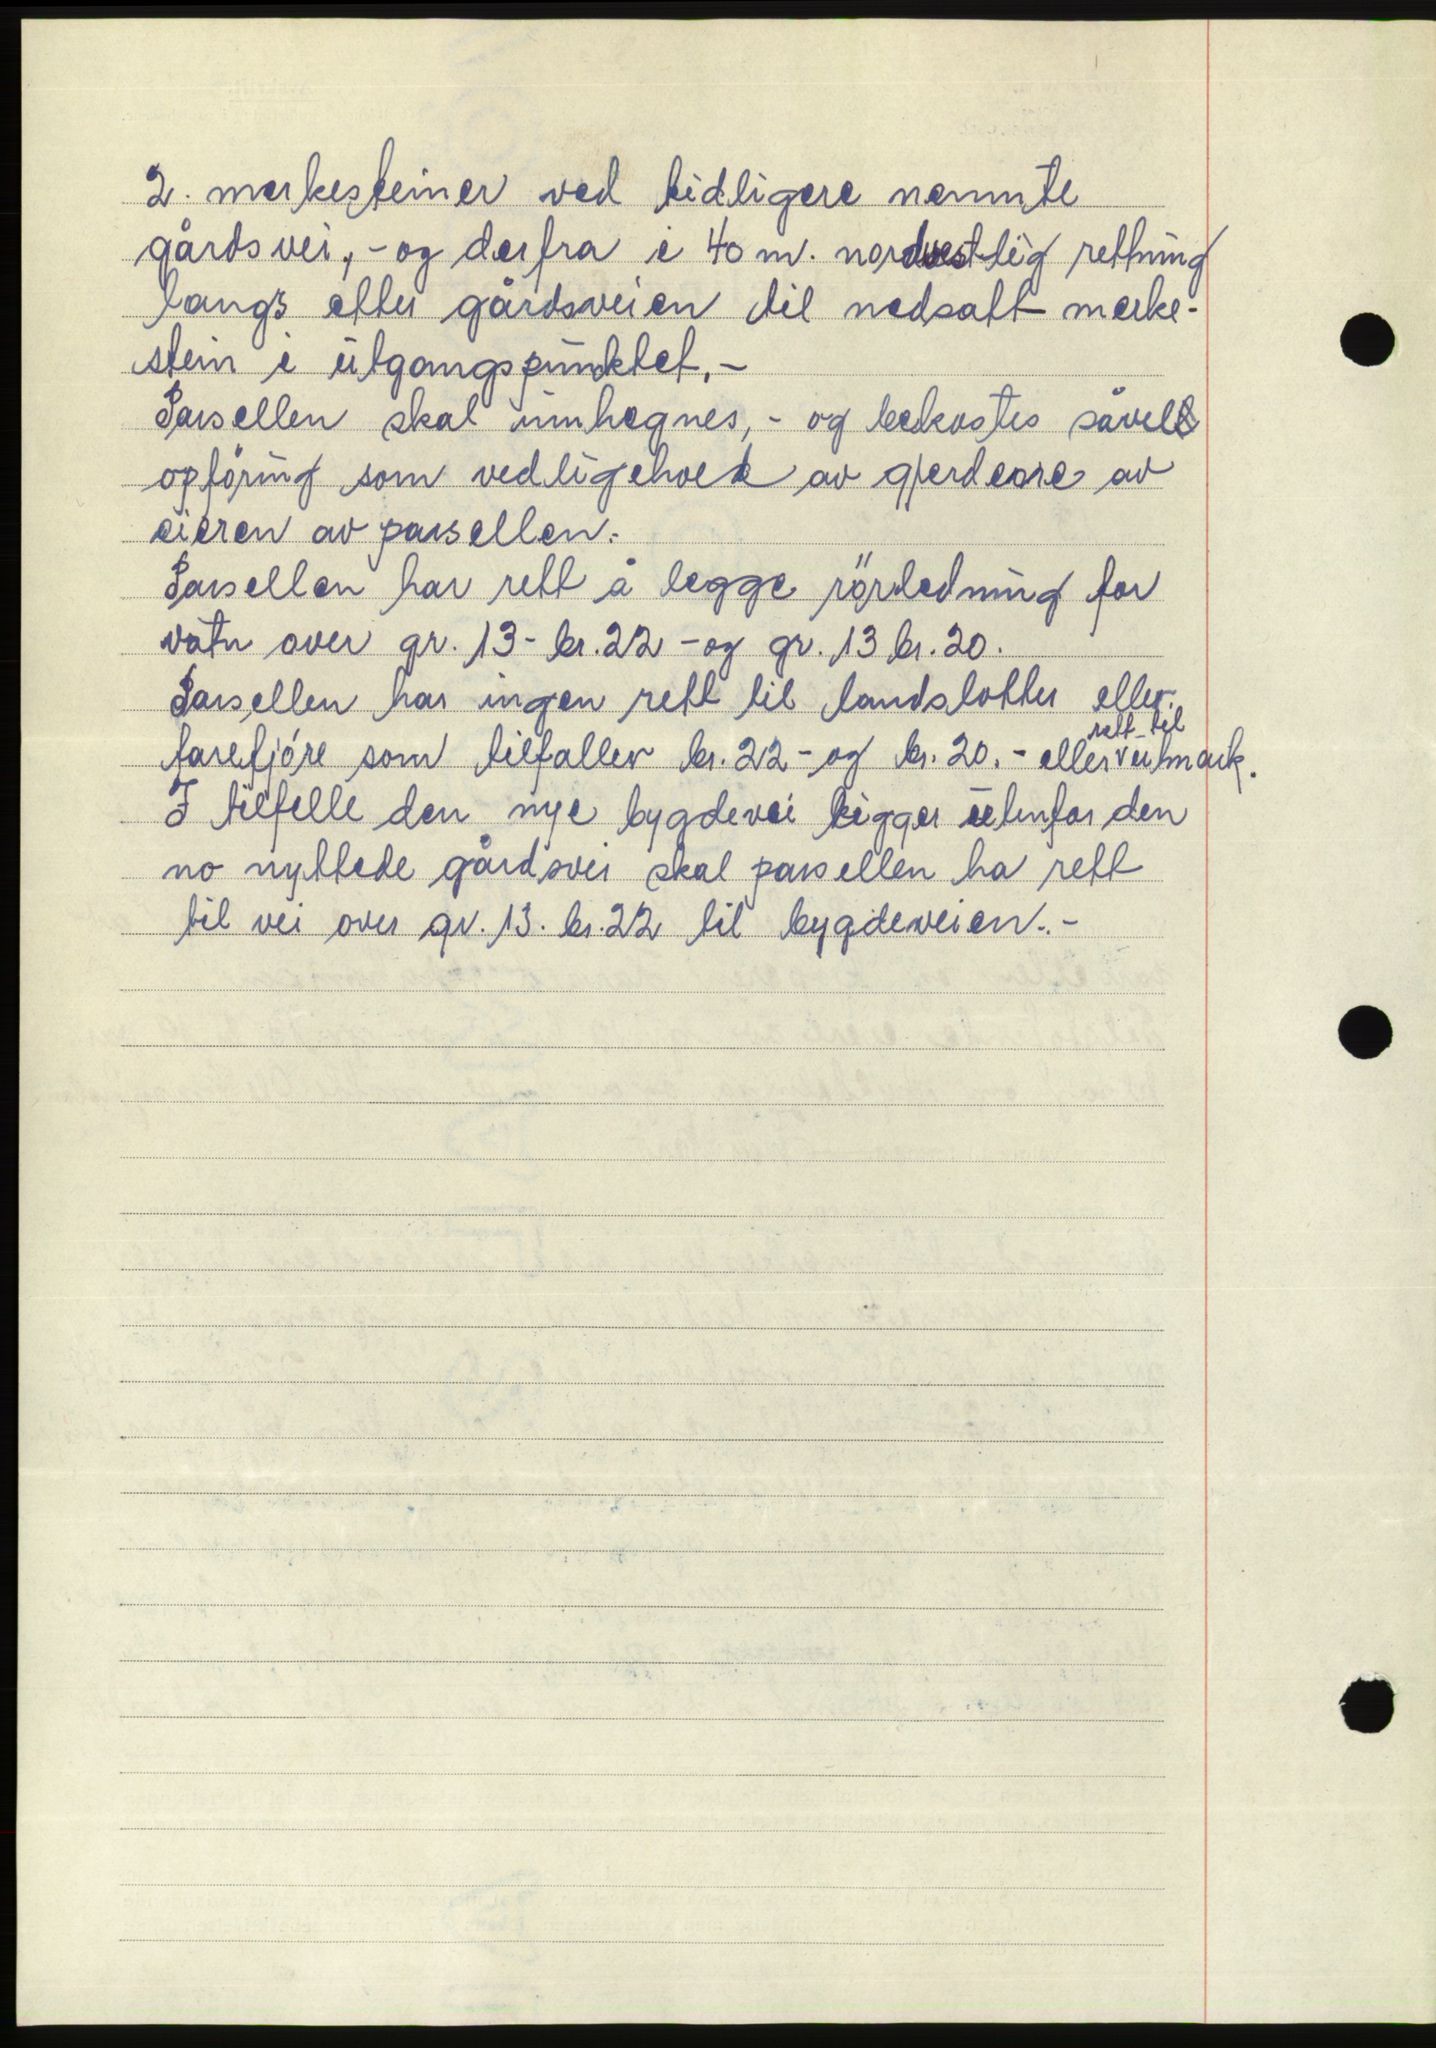 2. merkesteiner ved tidligere nemnte
gårdsvei, - og derfra i 40 m. nordvestlig rettning
langs etter gårdsveien til nedsatt merke-
stein i utgangspunktet. -
Parsellen skal innhegnes, - og bekostes såvel
opföring som vedligehold av gjerdene av
eieren av parsellen.
Parsellen har rett å legge rörledning for
vatn over gr. 13 - br. 22 - og gr. 13 br. 20.
Parsellen har ingen rett til landslotter eller
tarefjöre som tilfaller br. 22 - og br. 20. - eller rett til utmark.
I tilfelle den nye bygdevei ligger utenfor den
no nyttede gårdsvei skal parsellen ha rett
til vei over gr. 13. br. 22 til bygdeveien. -